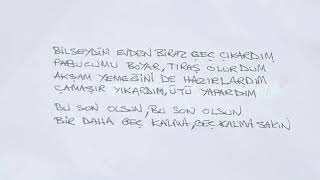 BİLSEYDİM EVDEN BİRAZ GEÇ ÇIKARDIM
PABUCUMU BOYAR, TIRAŞ OLURDUM
AKŞAM YEMEĞİNİ DE HAZIRLARDIM
ÇAMAŞIR YIKARDIM, ÜTÜ YAPARDIM
BU SON OLSUN, BU SON OLSUN
BİR DAHA GEÇ KALMA, GEÇ KALMA SAKIN